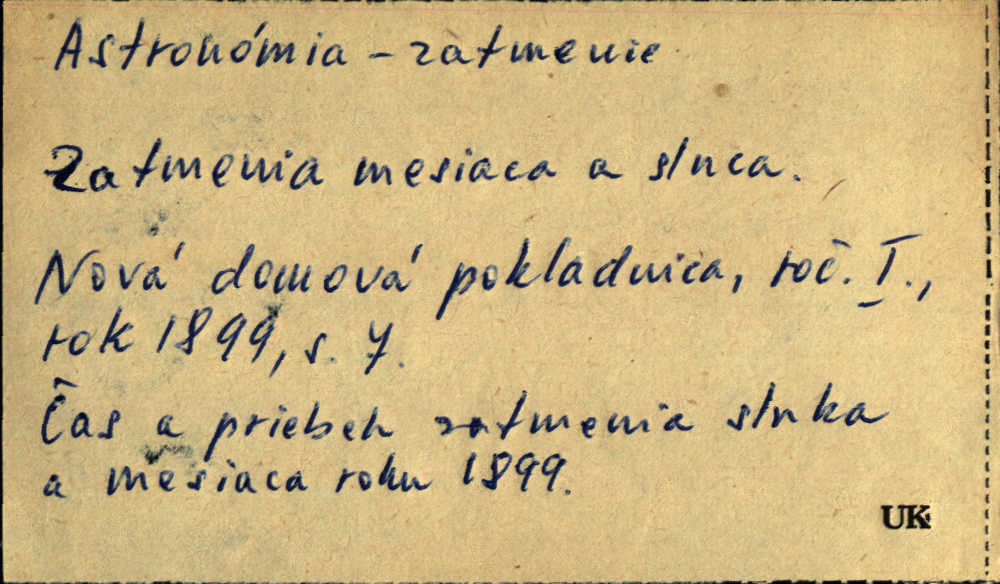 Astronómia - zatmenie
Zatmenia mesiaca a slnca.
Nová domová pokladnica, roč. I.,
rok 1899, s. 7.
Čas a priebeh zatmenia slnka
a mesiaca roku 1899.
UK